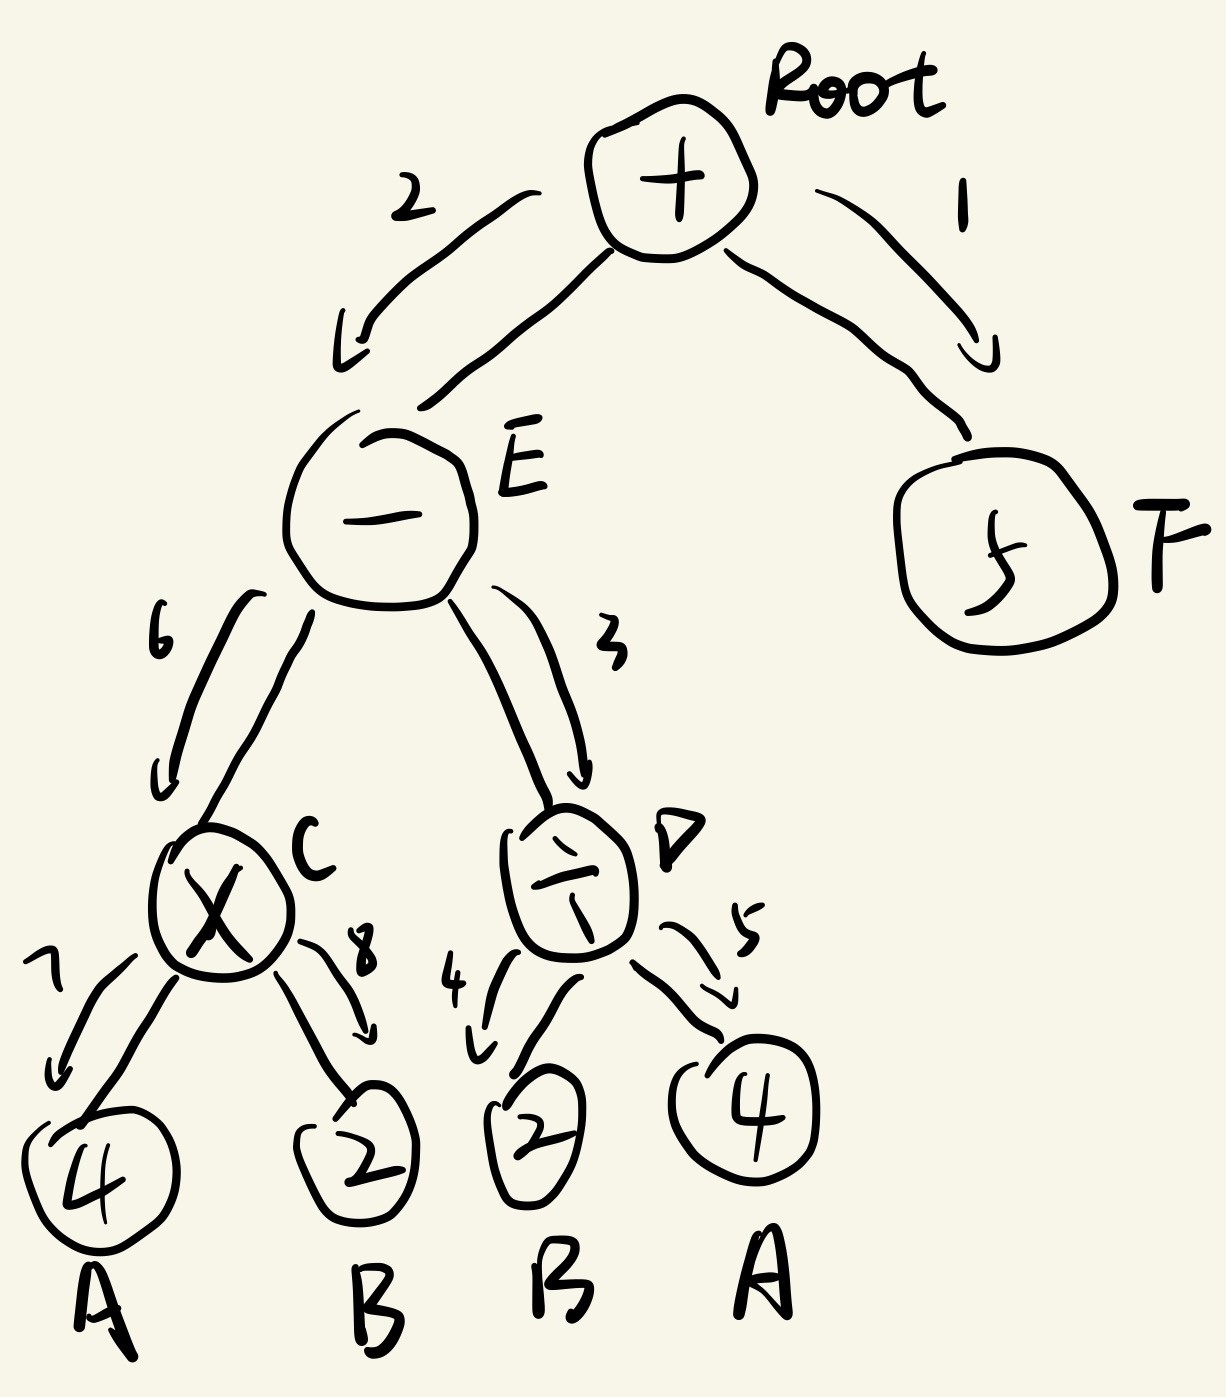 Root
+
2 1
E
-
5 F
6 3
C D
× ÷
7 8 4 5
4 2 2 4
A B B A